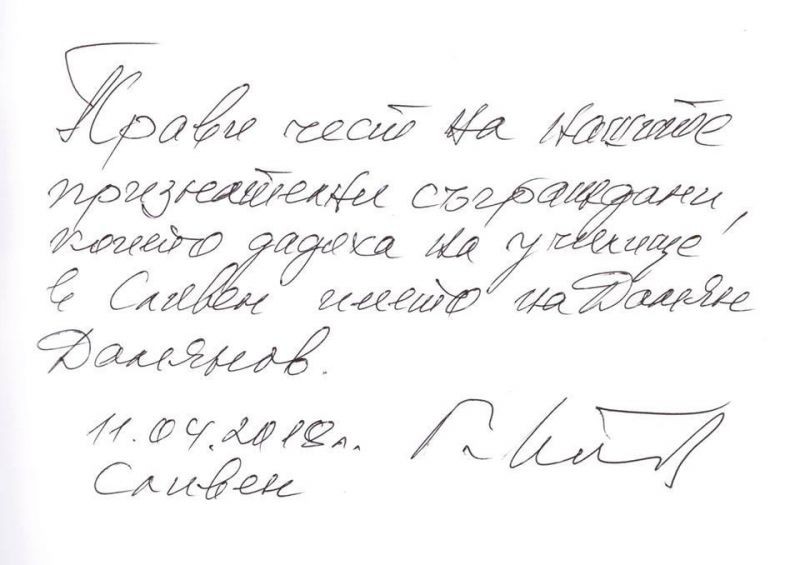 Прави чест на нашите
признателни съграждани,
които дадоха на училище
в Сливен името на Дамян
Дамянов.
11.04.2018г.
Сливен